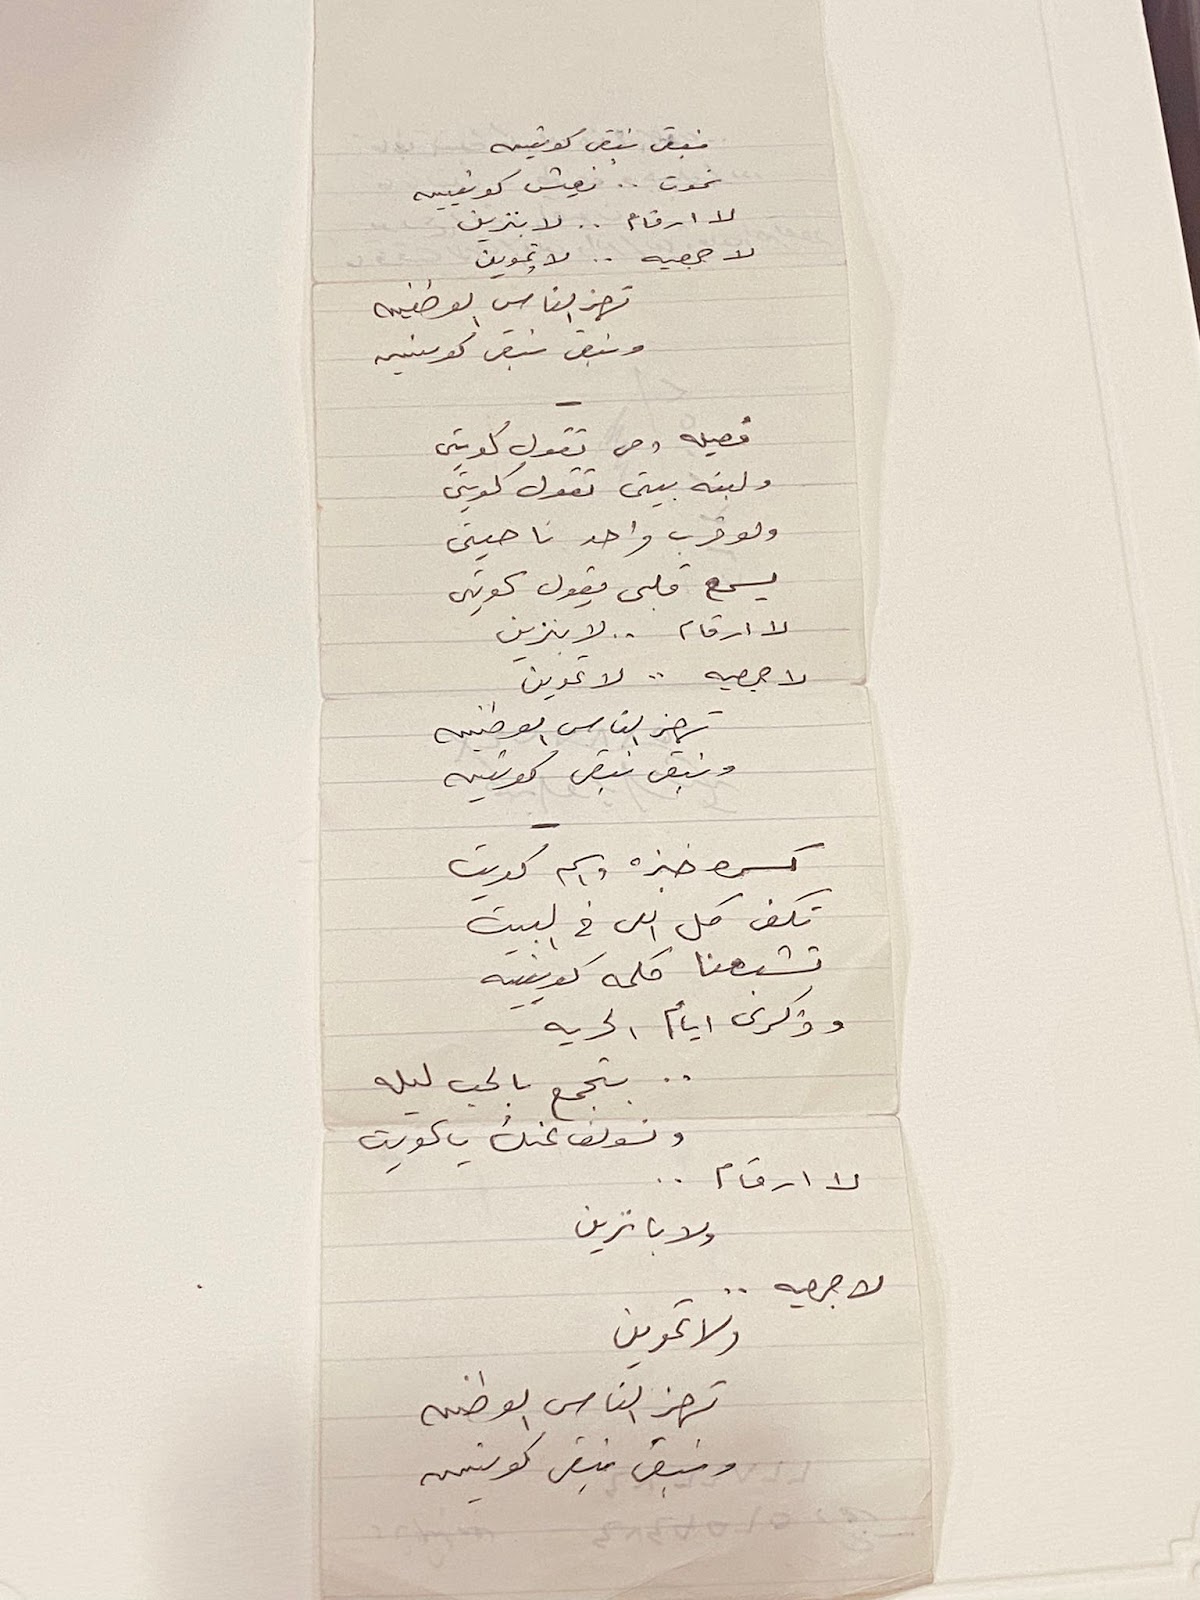 نبقى نبقى كويتيه
نموت .. نعيش كويتيه
لا ارقام .. لا بنزين
لا جمعيه .. لا تموين
تهز الناس الوطنيه
ونبقى نبقى كويتيه
–
فصيلة دمى تقول كويتى
ولبنة بيتى تقول كويتى
ولو قرب واحد ناحيتى
يسمع قلبى يقول كويتى
لا ارقام .. لا بنزين
لا جمعيه .. لا تموين
تهز الناس الوطنيه
ونبقى نبقى كويتيه
–
كسرة خبزه واسم كويت
تكفى كل اللى فى البيت
تشبعنا كلمة كويتيه
وذكرى ايام الحريه
.. بتجمع بالحب ليله
ونسولف عنك ياكويت
لا ارقام ..
ولا بانزين
لا جمعيه ..
ولا تموين
تهز الناس الوطنيه
ونبقى نبقى كويتيه